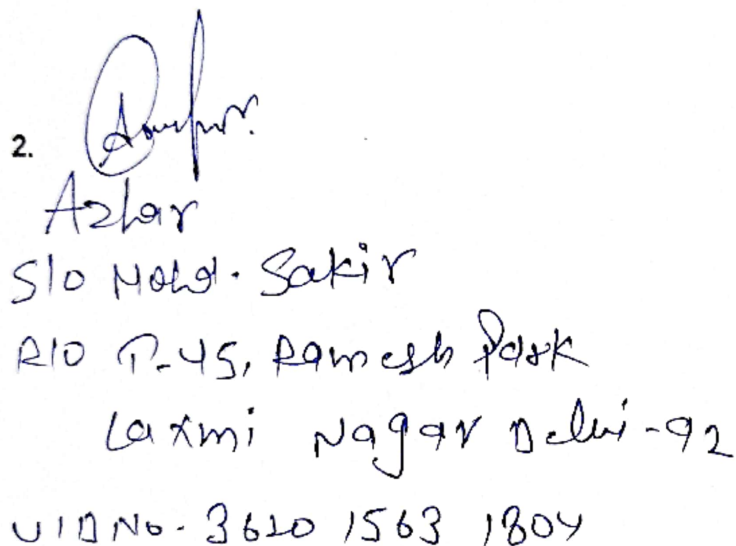 2.
Azhar
S/o Mohd. Sakir
R/O T-45, Ramesh Park
Laxmi Nagar Delhi-92
UID No. 3620 1563 1804